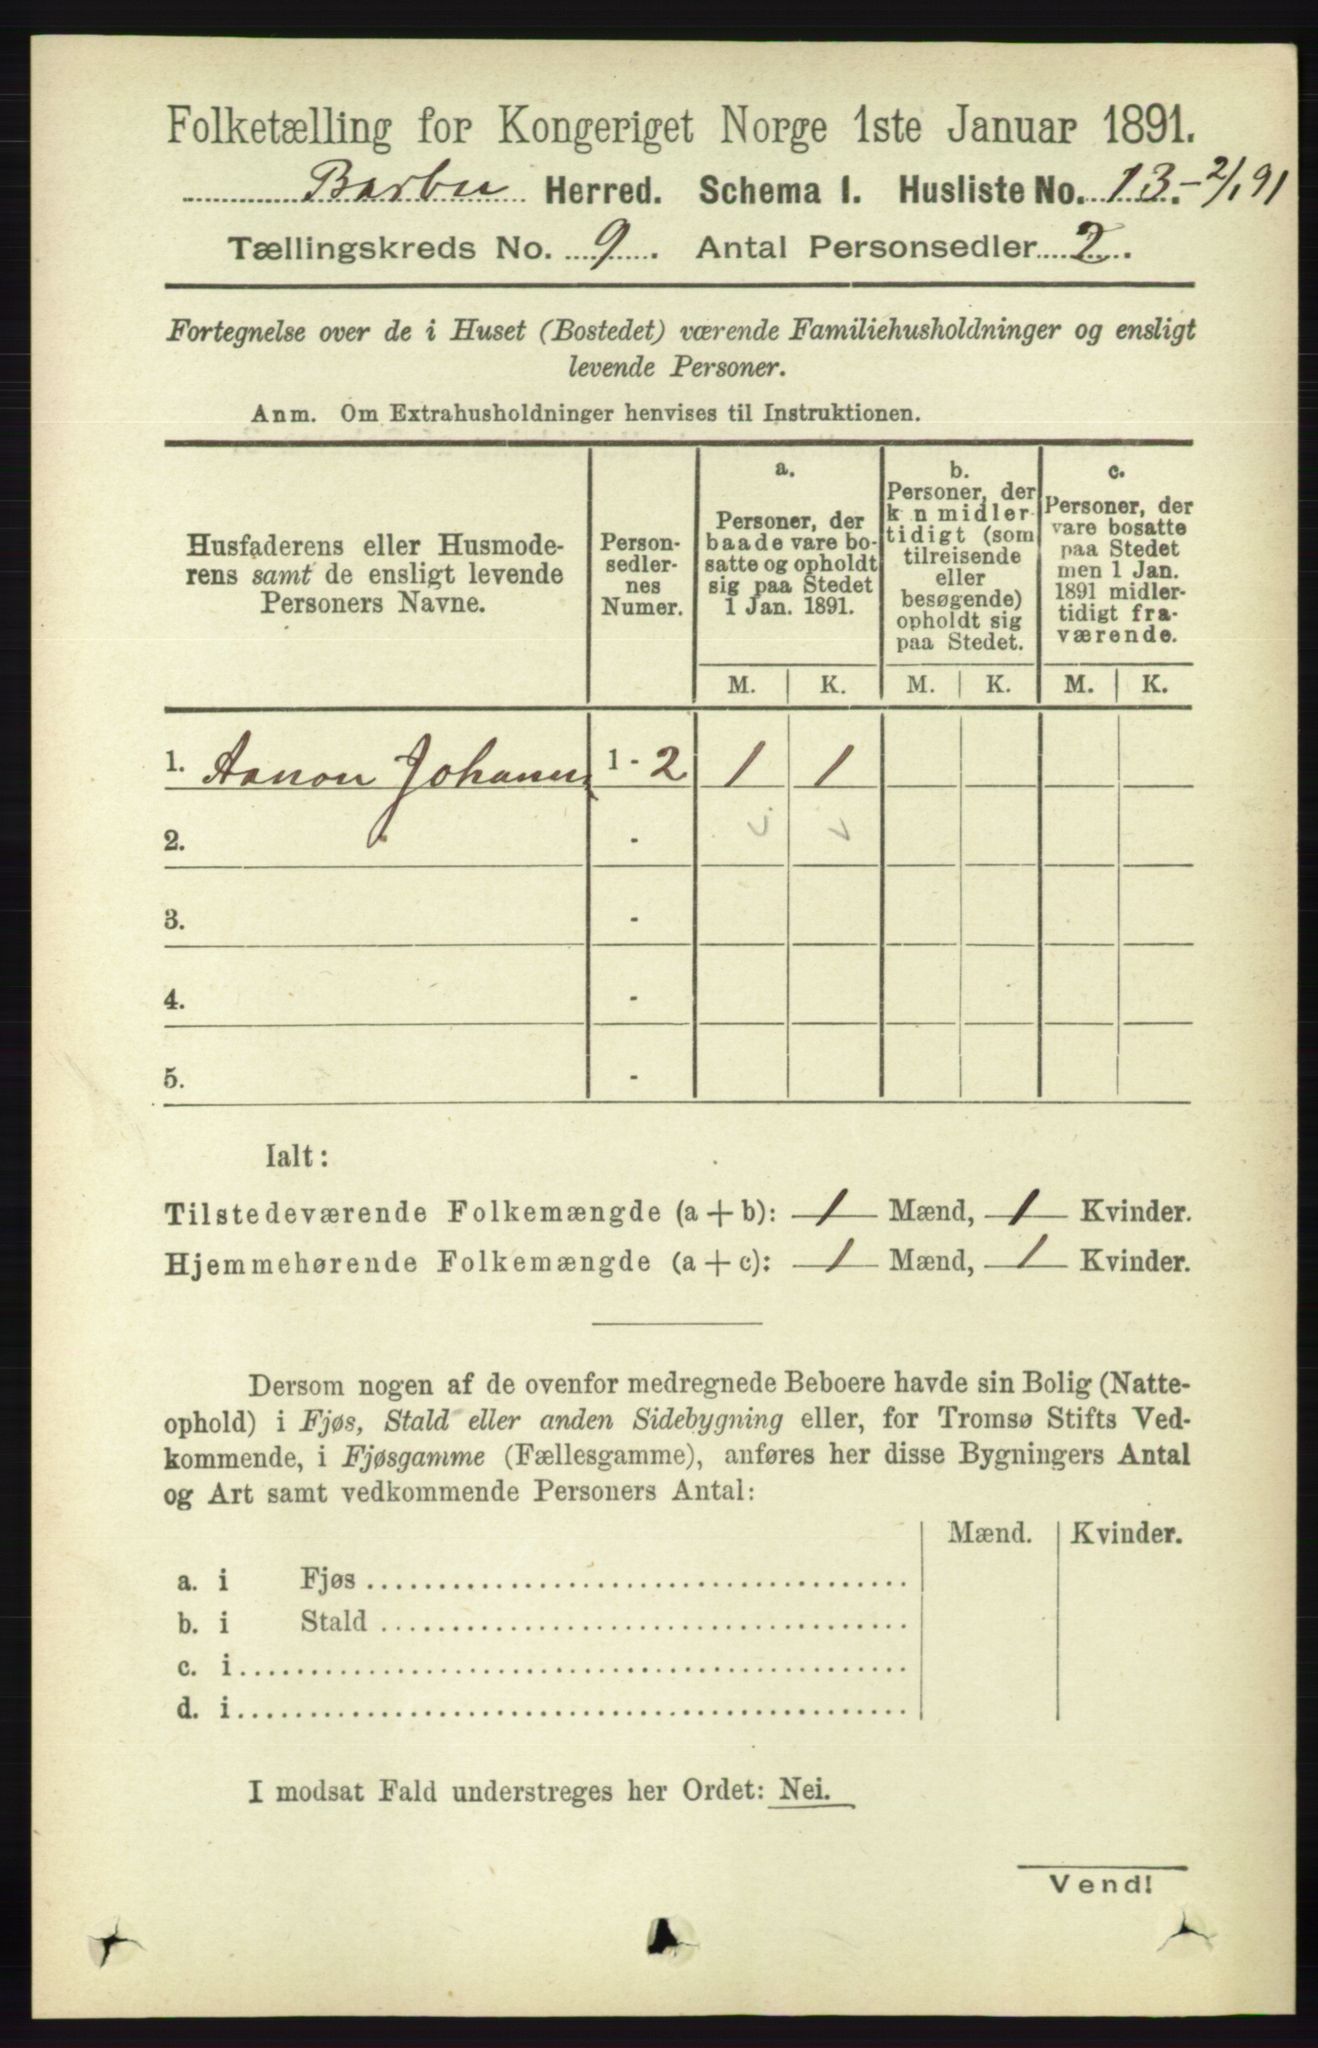 Folketælling for Kongeriget Norge 1ste Januar 1891.
Barbu Herred. Schema I. Husliste No. 13. - 2/1 91
Tællingskreds No. 9. Antal Personsedler 2.
Fortegnelse over de i Huset (Bostedet) værende Familiehusholdninger og ensligt
levende Personer.
Anm. Om Extrahusholdninger henvises til Instruktionen.
Husfaderens eller Husmode-
rens samt de ensligt levende
Personers Navne.
Person-
sedler-
nes
Numer.
a.
Personer, der
baade vare bo-
satte og opholdt
sig paa Stedet
1 Jan. 1891.
b.
Personer, der
k n midler-
tidigt (som
tilreisende
eller
besøgende)
opholdt sig
paa Stedet.
c.
Personer, der
vare bosatte
paa Stedet
men 1 Jan.
1891 midler-
tidigt fra-
værende.
M. K. M. K. M. K.
1. Aanon Johanns 1 - 2 1 1
2. -
3. -
4. -
5. -
Ialt:
Tilstedeværende Folkemængde (a + b): 1 Mænd, 1 Kvinder.
Hjemmehørende Folkemængde (a + c): 1 Mænd, 1 Kvinder.
Dersom nogen af de ovenfor medregnede Beboere havde sin Bolig (Natte-
ophold) i Fjøs, Stald eller anden Sidebygning eller, for Tromsø Stifts Ved-
kommende, i Fjøsgamme (Fællesgamme), anføres her disse Bygningers Antal
og Art samt vedkommende Personers Antal:
Mænd. Kvinder.
a. i Fjøs
b. i Stald
c. i
d. i
I modsat Fald understreges her Ordet: Nei.
Vend!